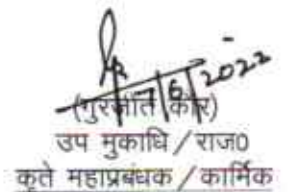 7/6/2022
(गुरजीत कौर)
उप मुकाधि / राज0
कृते महाप्रबंधक / कार्मिक